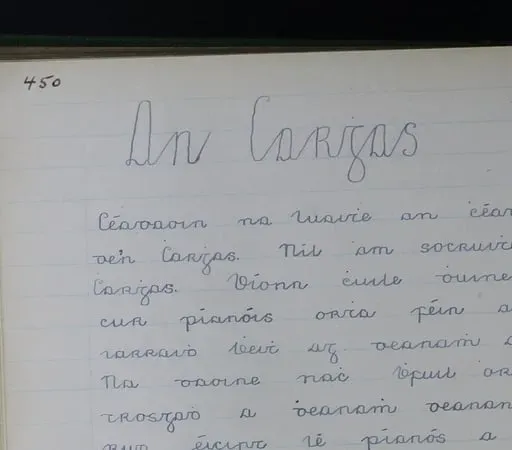 450
An Cargas
Céadaoin na Luaiṫe an céa
de'n Cargas. Níl am socruiġ
Cargas. Bíonn ċuile duine
cur píanóis orṫa féin a
iarraiḋ ḃeiṫ ag deanaṁ
Na daoine naċ ḃfuil or
trosgaḋ a ḋeanaṁ deanan
rud éicint lé píanós a